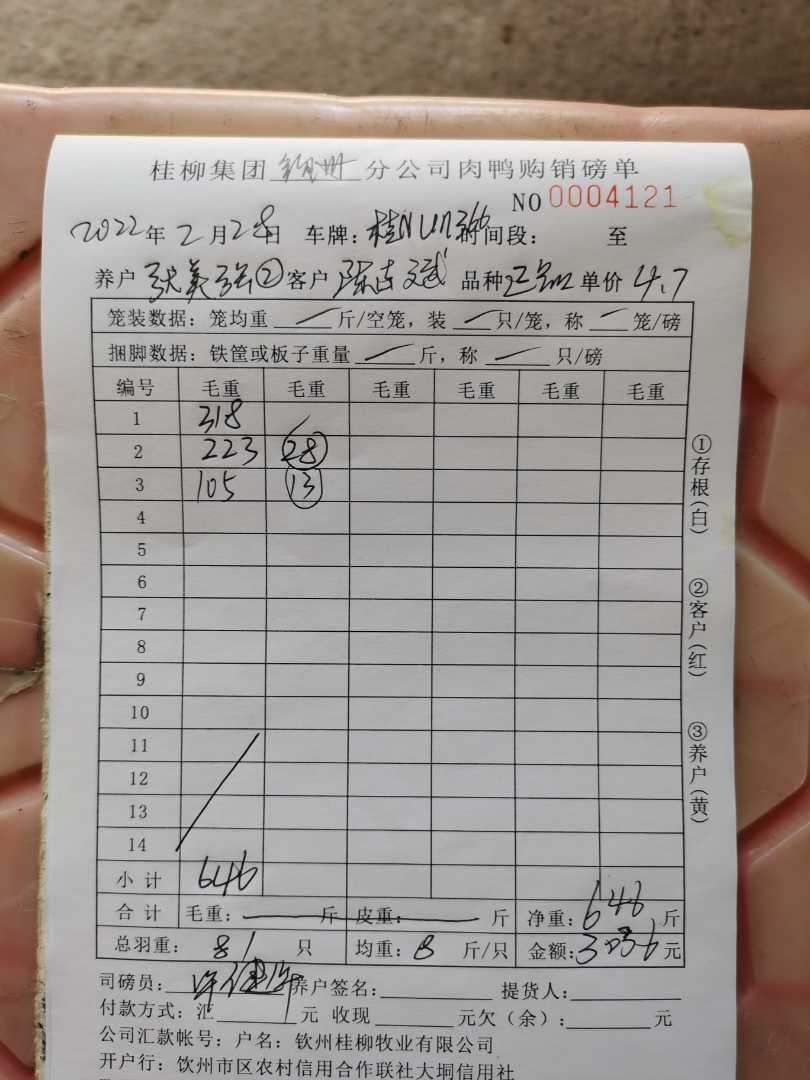 桂柳集团钦州分公司肉鸭购销磅单
NO 0004121
2022年2月28日 车牌：桂N 时间段： 至
养户 张美强② 客户 陈 武 品种 单价 4.7
笼装数据：笼均重 斤/空笼，装 只/笼，称 笼/磅
捆脚数据：铁筐或板子重量 斤，称 只/磅
编号 毛重 毛重 毛重 毛重 毛重 毛重
1 318
2 223 28
3 105 13
4
5
6
7
8
9
10
11
12
13
14
小计 646
合计 毛重： 斤 皮重： 斤 净重：646 斤
总羽重：81 只 均重：8 斤/只 金额：3036元
司磅员： 养户签名： 提货人：
付款方式：汇 元 收现 元欠（余）： 元
公司汇款帐号：户名：钦州桂柳牧业有限公司
开户行：钦州市区农村信用合作联社大垌信用社
①存根(白)
②客户(红)
③养户(黄)